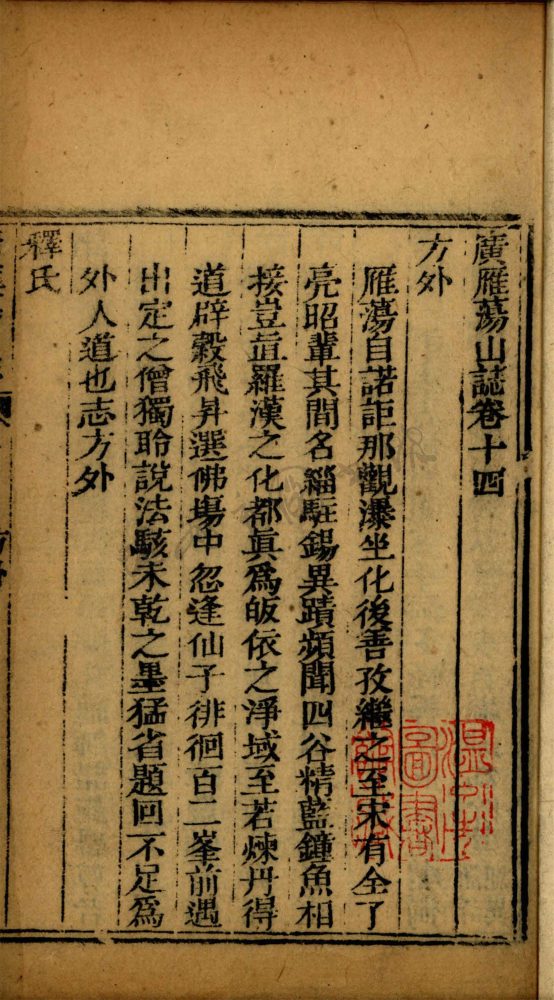 廣雁蕩山誌卷十四
方外
雁蕩自諾詎那觀瀑坐化後善孜繼之至宋有全了
亮昭輩其間名緇駐錫異蹟頻聞四谷精藍鐘魚相
接豈直羅漢之化都真爲皈依之淨域至若煉丹得
道辟穀飛昇選佛場中忽逢仙子徘徊百二峯前遇
出定之僧獨聆說法駭未乾之墨猛省題回一不足爲
外人道也志方外
釋氏